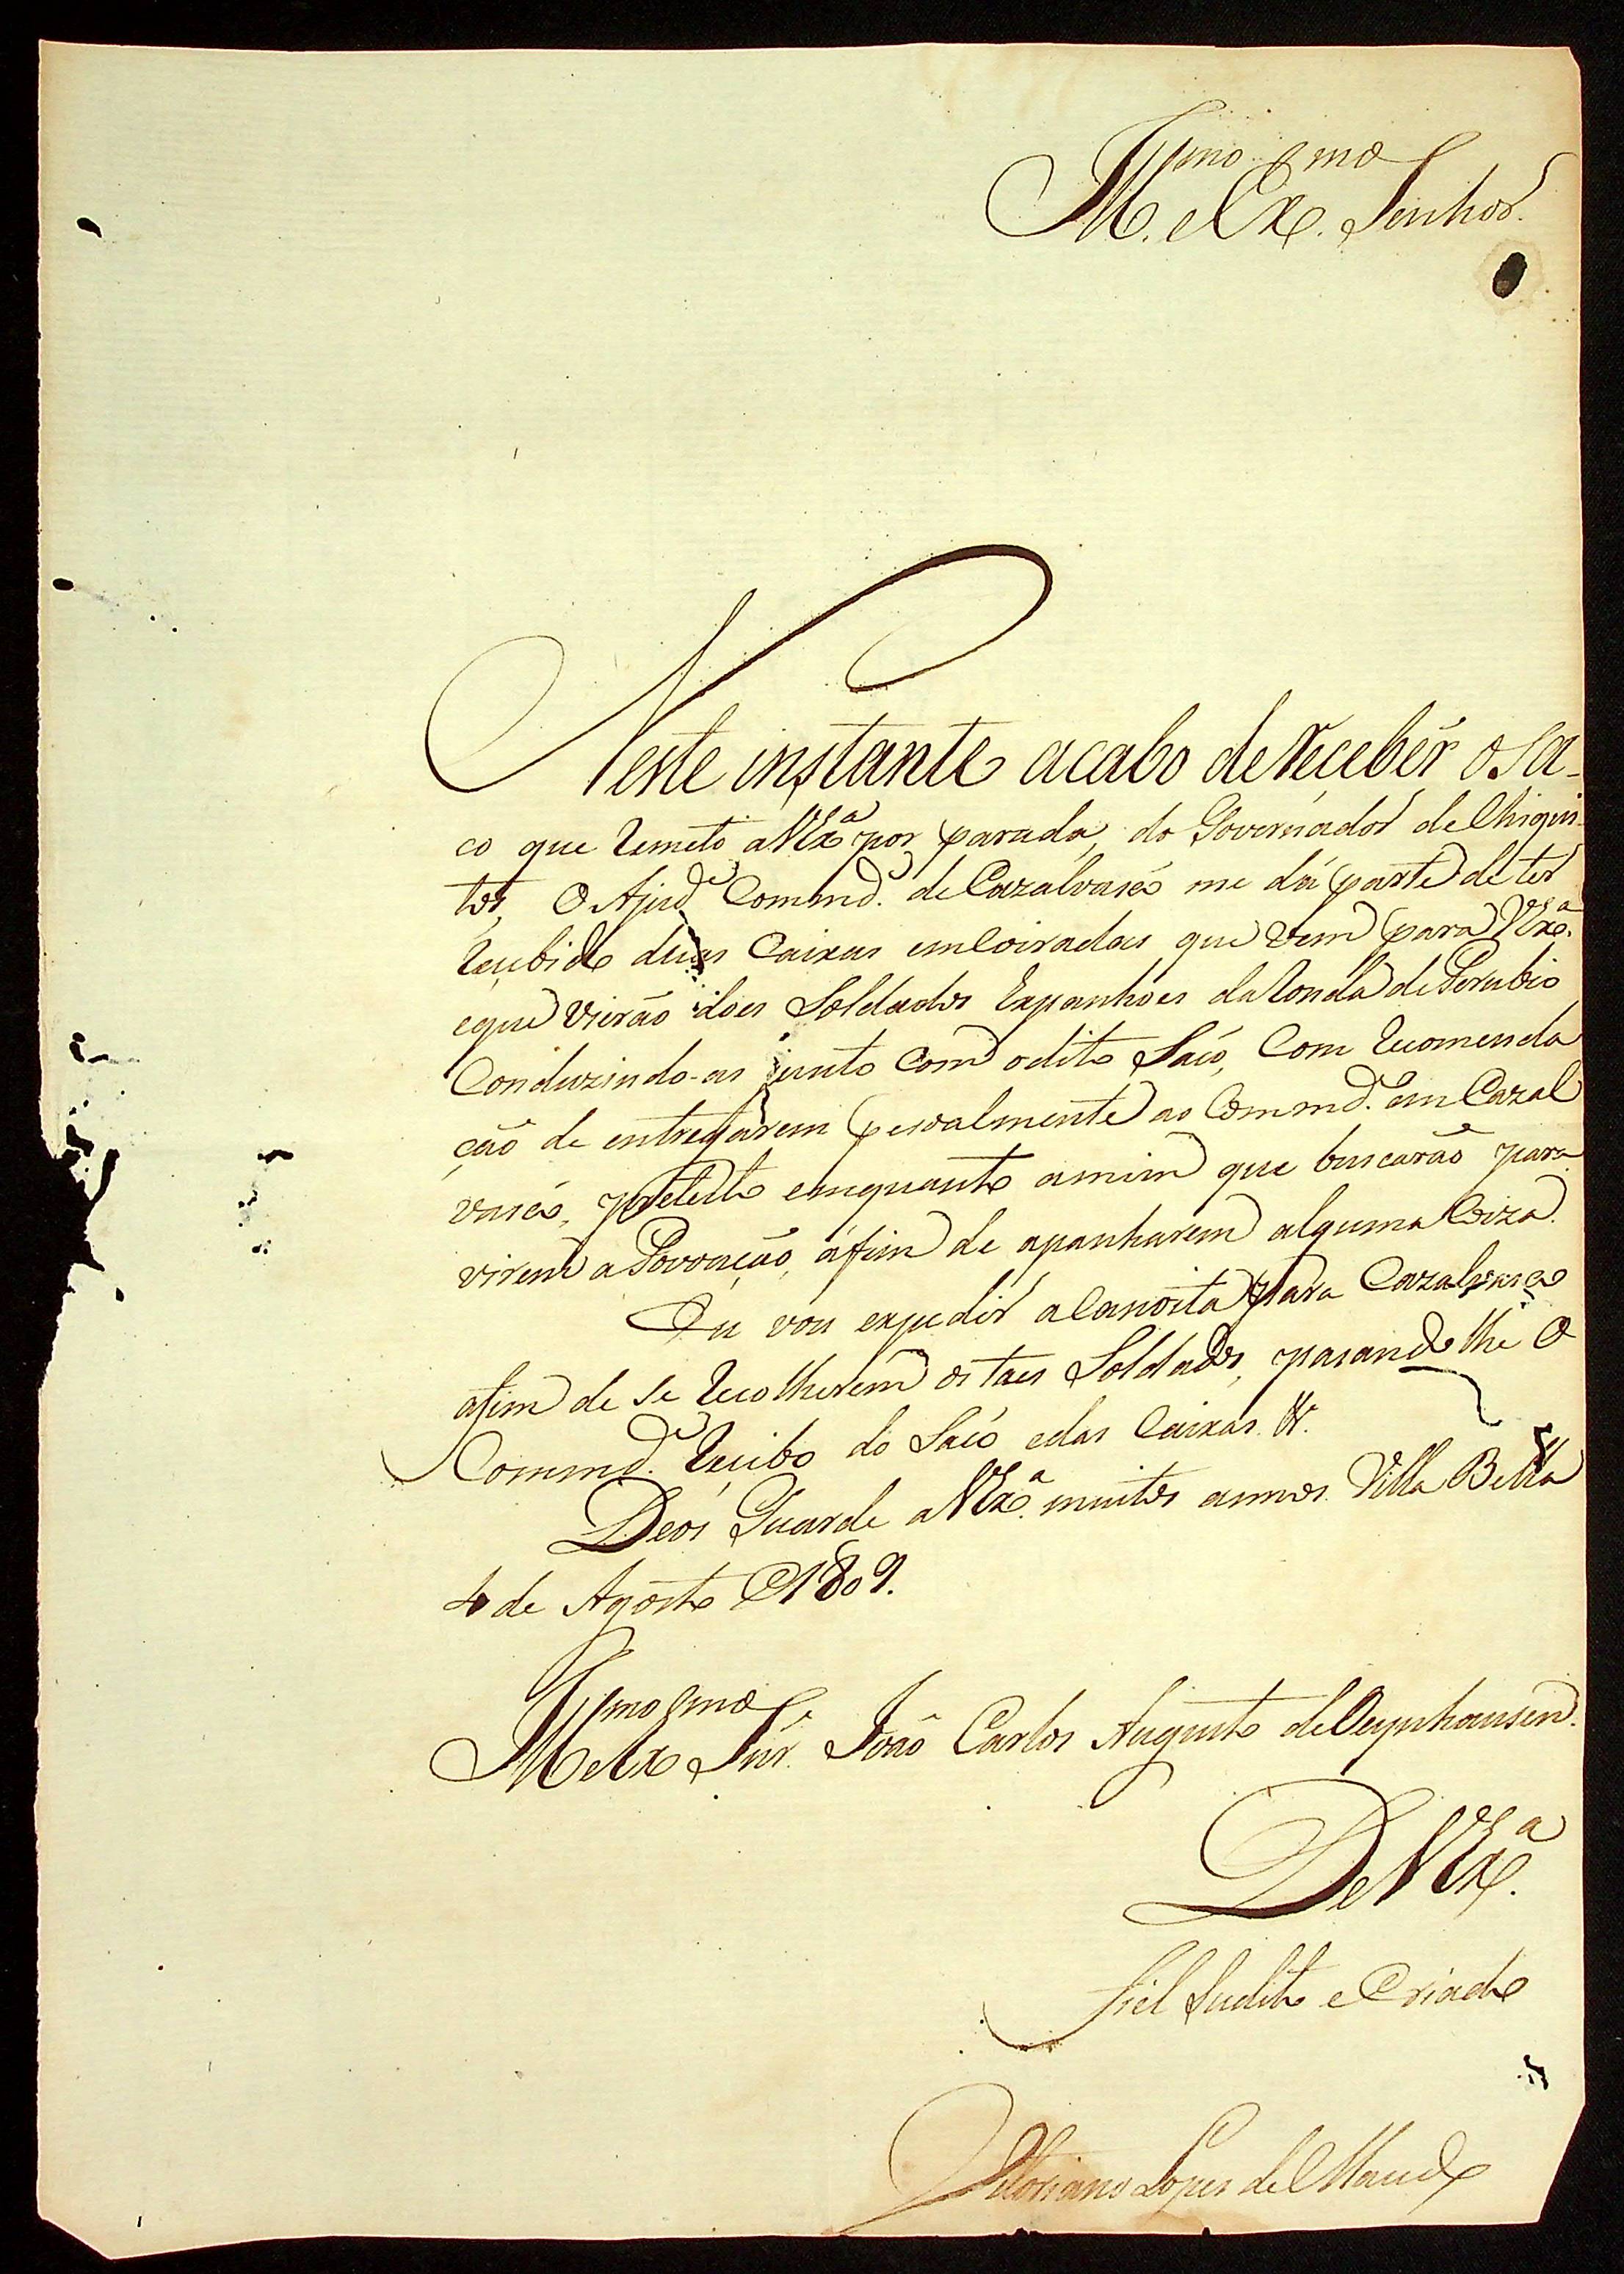 Ill.mo e Ex.mo Senhor.
Neste instante acabo de receber o sa-
co que remeto a V Ex.a por parada, do Governador de Chiqui-
tos, O Ajud.e Commd.e de Cazalvasco me dá parte de ter
recebido duas Caixas encoiradas que vem para V Ex.a
e que vierão dois Soldados Expanhoes da ronda de Perubio
Conduzindo-as junto com o dito Saco, Com recomenda
ção de entregarem pesoalmente ao Commd.e em Cazal
vasco, pretesto emquanto a mim que buscarão para
virem a Povoação, afim de apanharem alguma Coiza.
Eu vou expedir a Canoita para Cazalvasco
afim de se recolherem os taes Soldados, pasando lhe O
Commd.e recibo do Saco e das Caixas &.
Deos Guarde a V Ex.a muitos annos. Villa Bella
4 de Agosto de 1809.
Ill.mo e Ex.mo Snr. João Carlos Augusto de Oeynhausen.
De V Ex.a
Fiel Sudito e Criado
Vitoriano Lopes de Macedo